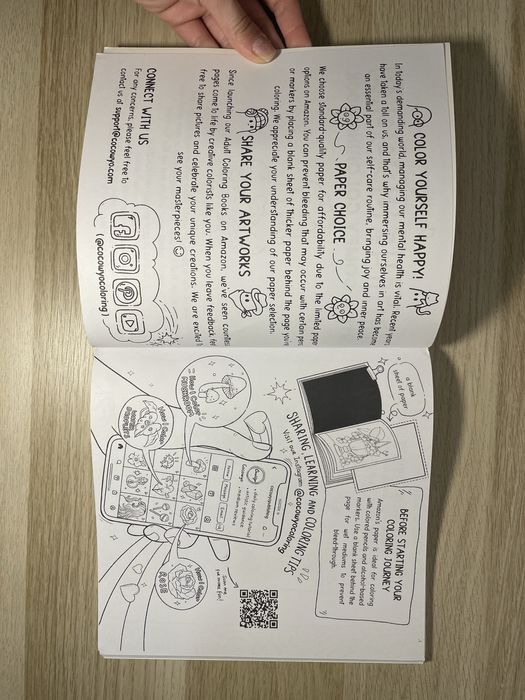 COLOR YOURSELF HAPPY!
In today's demanding world, managing our mental health is vital. Recent years
have taken a toll on us, and that's why immersing ourselves in art has become
an essential part of our self-care routine, bringing joy and inner peace.
PAPER CHOICE
We choose standard-quality paper for affordability due to the limited paper
options on Amazon. You can prevent bleeding that may occur with certain pens
or markers by placing a blank sheet of thicker paper behind the page you're
coloring. We appreciate your understanding of our paper selection.
SHARE YOUR ARTWORKS
Since launching our Adult Coloring Books on Amazon, we've seen countless
pages come to life by creative colorists like you. When you leave feedback, feel
free to share pictures and celebrate your unique creations. We are excited
see your masterpieces!
CONNECT WITH US
For any concerns, please feel free to
contact us at support@cocowyo.com
(@cocowyocoloring)
a blank
sheet of paper
BEFORE STARTING YOUR
COLORING JOURNEY
Amazon's paper is ideal for coloring
with colored pencils and alcohol-based
markers. Use a blank sheet behind the
page for wet mediums to prevent
bleed-through.
SHARING, LEARNING AND COLORING TIPS
Visit our Instagram @cocowyocoloring
How I Color
MUSHROOM
How I Color
ROSE
Scan me
for more fun!